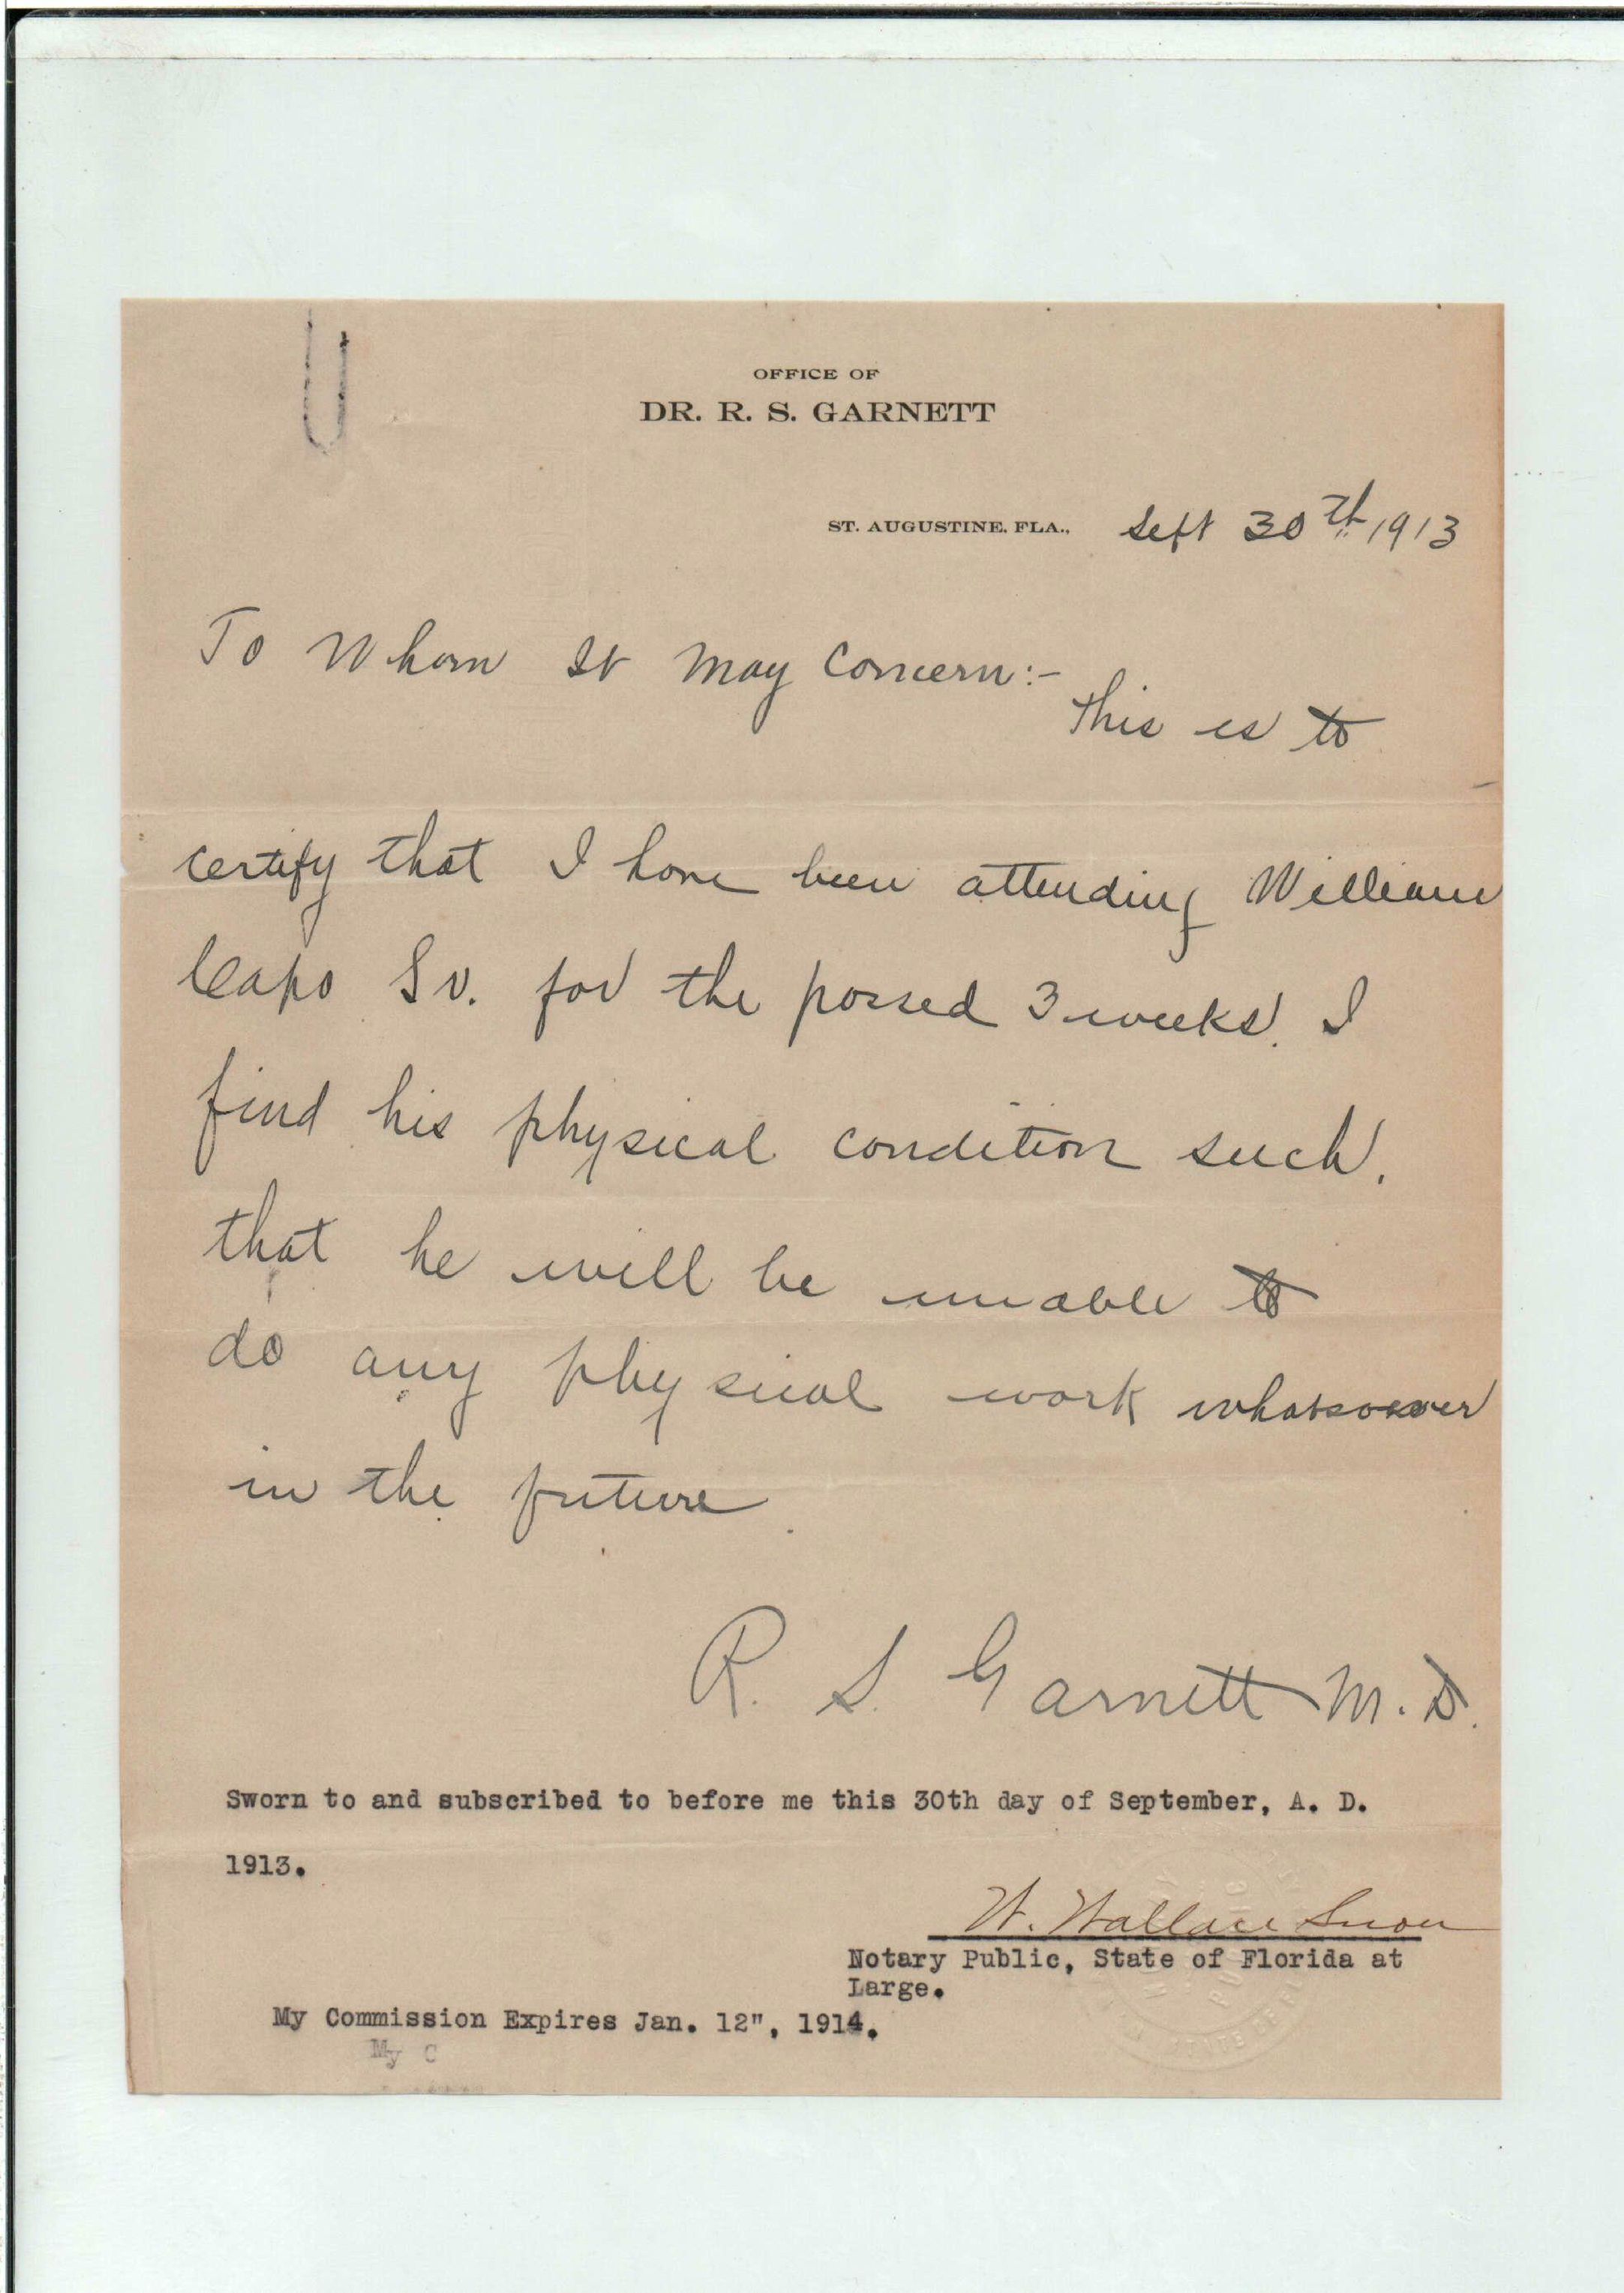 OFFICE OF
DR. R. S. GARNETT
ST. AUGUSTINE, FLA., Sept 30th 1913
To Whom It May Concern:-
This is to
certify that I have been attending William
Capo Sr. for the passed 3 weeks. I
find his physical condition such,
that he will be unable to
do any physical work whatsoever
in the future.
R. S. Garnett M. D.
Sworn to and subscribed to before me this 30th day of September, A. D.
1913.
W. Wallace Snow
Notary Public, State of Florida at
Large.
My Commission Expires Jan. 12", 1914.
My C